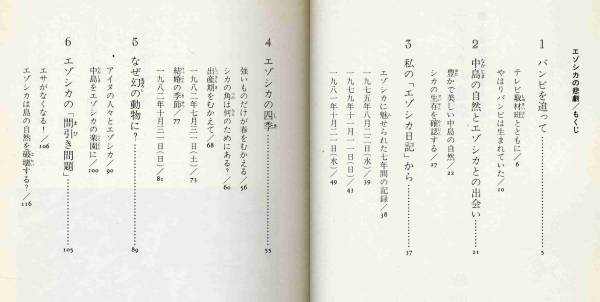 エゾシカの悲劇／もくじ
1 バンビを追って……5
テレビ取材班とともに／6
やはりバンビは生まれていた／10
2 中島の自然とエゾシカとの出会い……21
豊かで美しい中島の自然／22
シカの生存を確認する／27
3 私の「エゾシカ日記」から……37
エゾシカに魅せられた七年間の記録／38
一九七五年八月二二日(水)／39
一九七九年十一月一一日(日)／43
一九八一年十月二一日(水)／49
4 エゾシカの四季……55
強いものだけが春をむかえる／56
シカの角は何のためにある？／60
出産期をむかえて／68
一九八二年七月三一日(土)／73
結婚の季節／77
一九八二年十月三一日(日)／81
5 なぜ幻の動物に？……89
アイヌの人々とエゾシカ／90
中島をエゾシカの楽園に／100
6 エゾシカの「間引き問題」……105
エサがなくなる！／106
エゾシカは島の自然を破壊する？／116